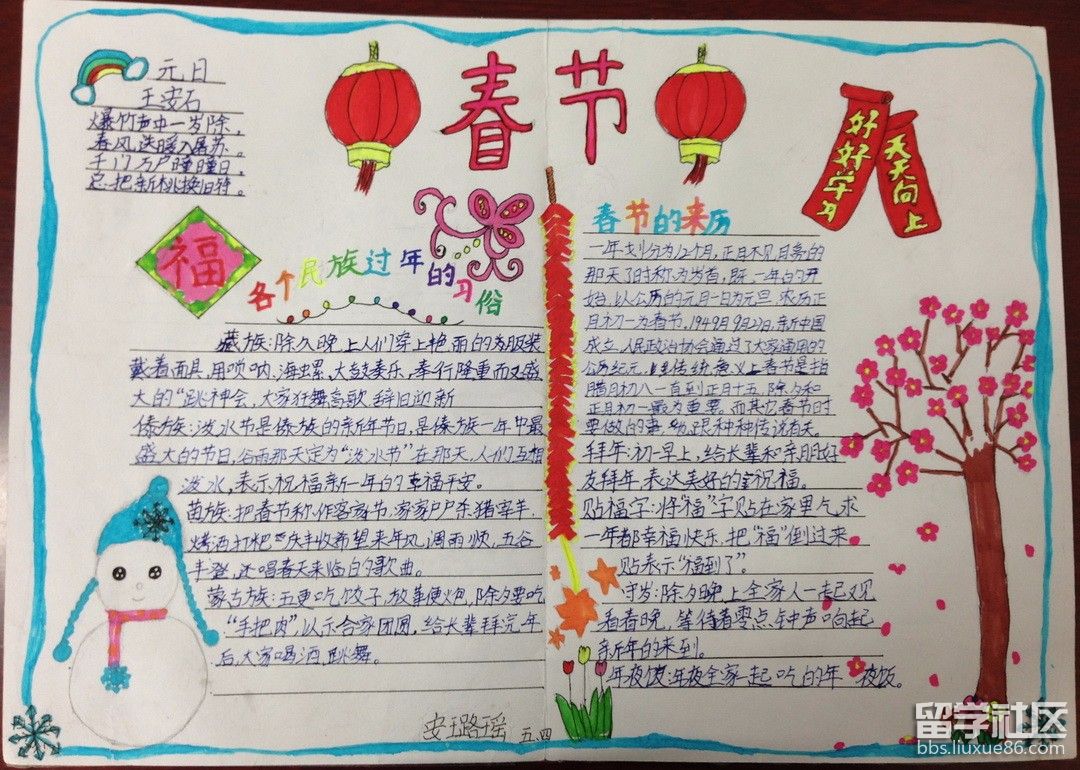 春节
元日
王安石
爆竹声中一岁除，
春风送暖入屠苏。
千门万户曈曈日，
总把新桃换旧符。
好好学习
天天向上
福
各个民族过年的习俗
藏族：除夕晚上人们穿上艳丽的为服装
戴着面具，用唢呐、海螺、大鼓奏乐，奉行隆重而又盛
大的“跳神会，大家狂舞高歌 辞旧迎新
傣族：泼水节是傣族的新年节日，是傣族一年中最
盛大的节日，谷雨那天定为“泼水节”在那天，人们互相
泼水，表示祝福新一年的幸福平安。
苗族：把春节称作客家节，家家户户杀猪宰羊
烤酒打粑 庆丰收希望来年风调雨顺，五谷
丰登，还唱春天来临白的歌曲。
蒙古族：五更吃饺子，放鞭火包，除夕要吃
“手把肉”以示合家团圆，给长辈拜完年
后，大家喝酒，跳舞。
春节的来历
一年划分为12个月，正月不见月亮的
那天子时称为岁首，既一年的开
始，以公历的元月一日为元旦 农历正
月初一为春节，1949月9月27日，新中国
成立，人民政治协会通过了大家通用的
公历纪元，传统意义上春节是指
腊月初八一直到正月十五，除夕和
正月初一最为重要。而其它春节时
要做的事 跟种种传说有关。
拜年：初一早上，给长辈和亲朋好
友拜年，表达美好的祝福。
贴福字：将“福”字贴在家里气，求
一年都幸福快乐，把“福”倒过来
贴表示“福到了”。
守岁：除夕晚上全家人一起观
看春晚，等待着零点钟声响起
新年的来到。
年夜饭：年夜全家一起吃的年夜饭。
安路瑶 五.四
留学社区
bbs.liuxue86.com